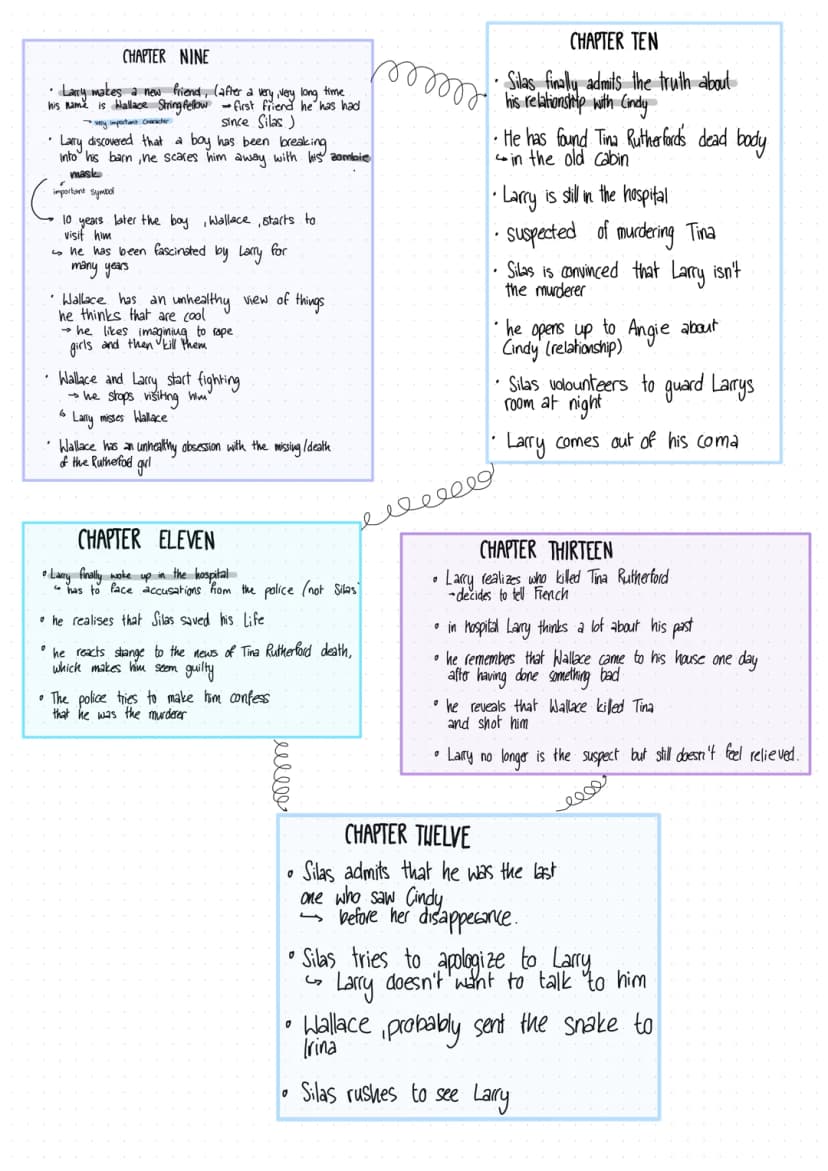 CHAPTER NINE
· Larry makes a new friend, (after a very, very long time
his name is Wallace Stringfellow → first friend he has had
→ very important character since Silas )
· Larry discovered that a boy has been breaking
into his barn, he scares him away with his zombie
mask
important symbol
→ 10 years later the boy, Wallace, starts to
visit him
↳ he has been fascinated by Larry for
many years
· Wallace has an unhealthy view of things
he thinks that are cool
→ he likes imagining to rape
girls and then kill them
· Wallace and Larry start fighting
→ he stops visiting him
↳ Larry misses Wallace
· Wallace has an unhealthy obsession with the missing/death
of the Rutherfod girl
CHAPTER TEN
· Silas finally admits the truth about
his relationship with Cindy
· He has found Tina Rutherford's dead body
↳ in the old cabin
· Larry is still in the hospital
· suspected of murdering Tina
· Silas is convinced that Larry isn't
the murderer
· he opens up to Angie about
Cindy (relationship)
· Silas volounteers to guard Larrys
room at night
· Larry comes out of his coma
CHAPTER ELEVEN
• Larry finally woke up in the hospital
↳ has to face accusations from the police (not Silas)
• he realises that Silas saved his Life
• he reacts stange to the news of Tina Rutherford death,
which makes him seem guilty
• The police tries to make him confess
that he was the murderer
CHAPTER THIRTEEN
• Larry realizes who killed Tina Rutherford
→ decides to tell French
• in hospital Larry thinks a lot about his past
• he remembers that Wallace came to his house one day
after having done something bad
• he reveals that Wallace killed Tina
and shot him
• Larry no longer is the suspect but still doesn't feel relieved.
CHAPTER TWELVE
• Silas admits that he was the last
one who saw Cindy
↪ before her disappearance.
• Silas tries to apologize to Larry
↳ Larry doesn't want to talk to him
• Wallace, probably sent the snake to
Irina
• Silas rushes to see Larry